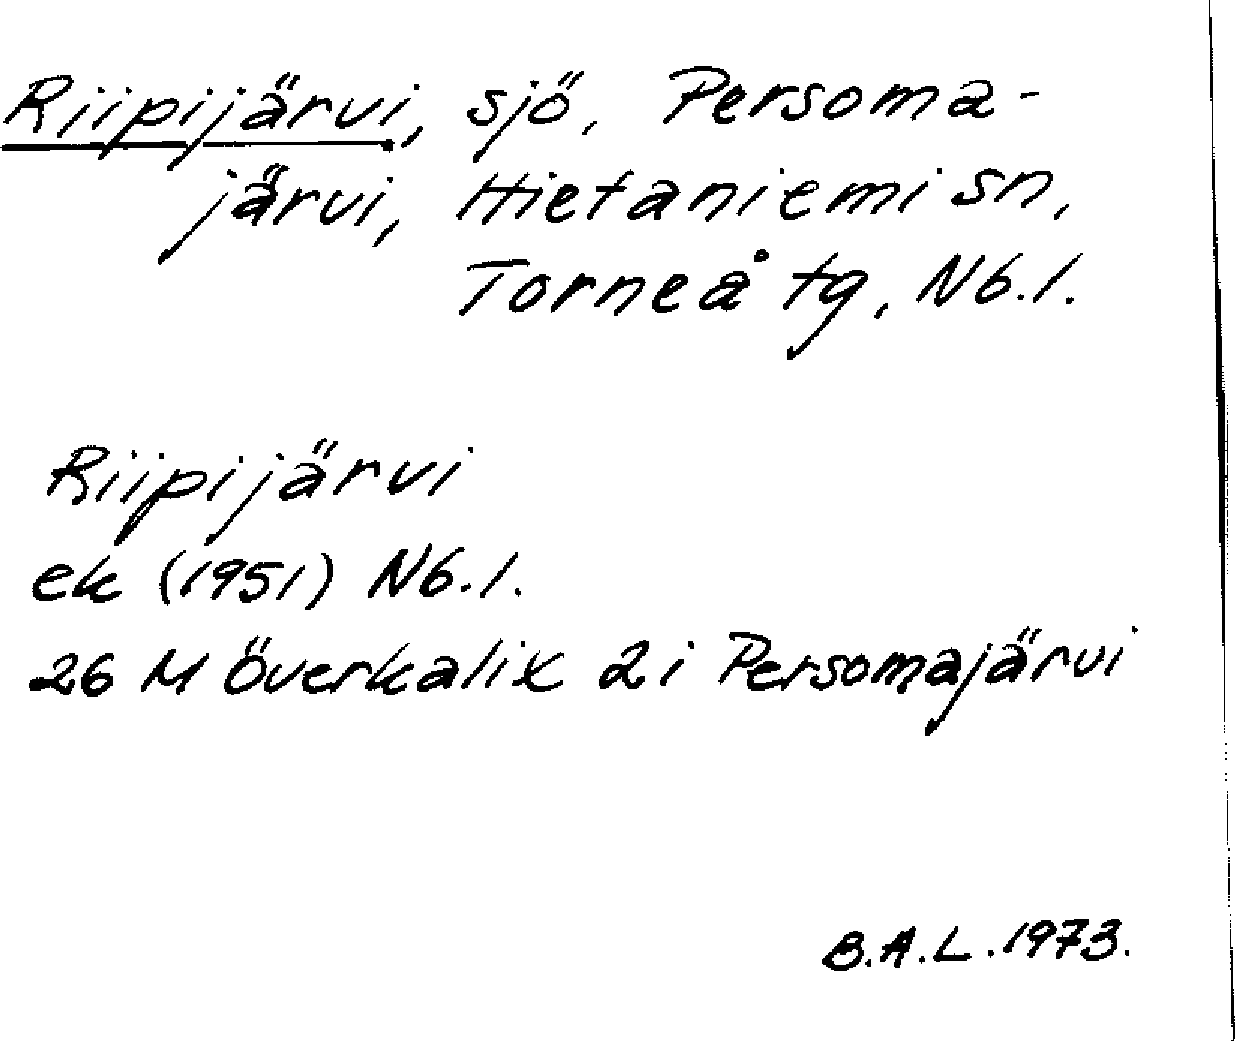 Riipijärvi, sjö, Persoma-
järvi, Hietaniemi sn,
Torneå tg, Nb.l.
Riipijärvi
ek (1951) Nb.l.
26 M Överkalix 2 i Persomajärvi
B.A.L. 1973.